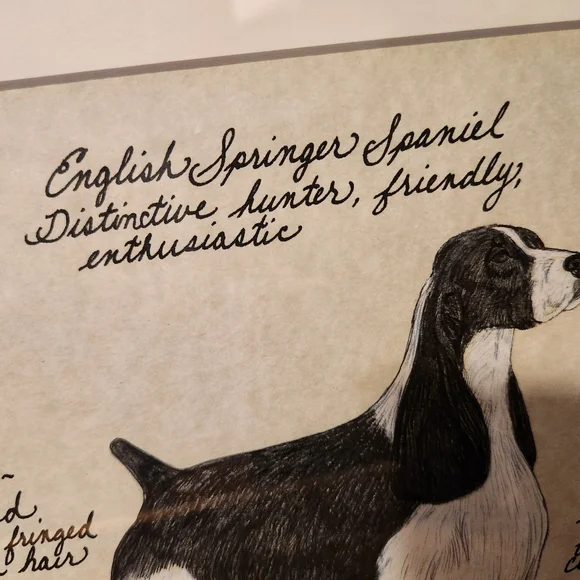 English Springer Spaniel
Distinctive hunter, friendly,
enthusiastic
fringed
hair